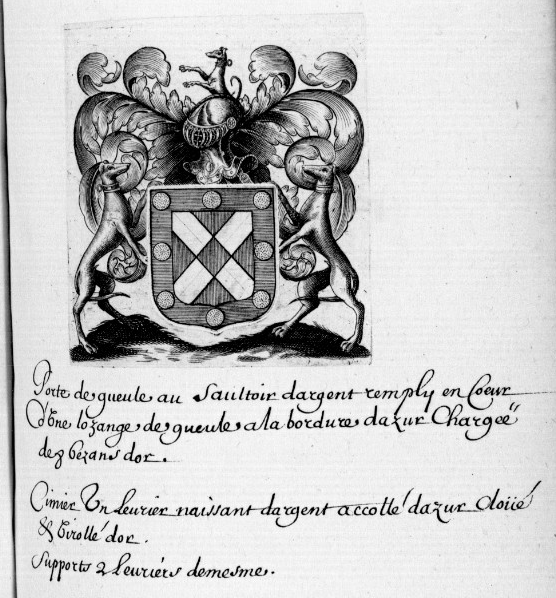 Porte de gueule au Saultoir dargent remply en Coeur
d'Vne lozange de gueule a la bordure dazur Chargeé
de 8 bezans dor.
Cimier Vn leurier naissant dargent accollé dazur Cloüé
& Virollé dor.
Supports 2 leuriers demesme.